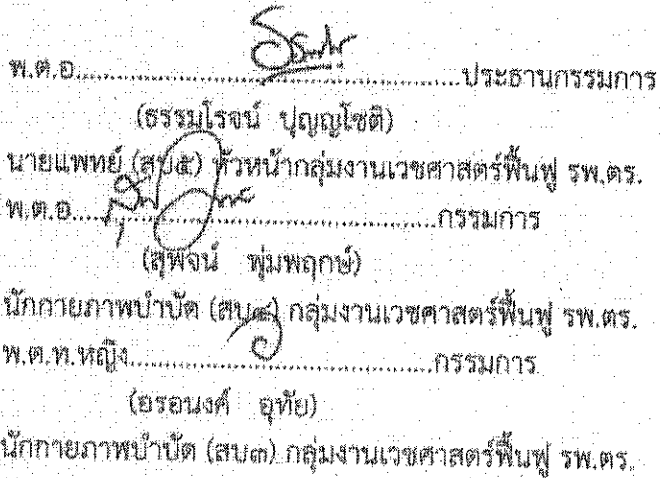 พ.ต.อ.............................................ประธานกรรมการ
(ธรรมโรจน์ ปุญญโชติ)
นายแพทย์ (สบ๕) หัวหน้ากลุ่มงานเวชศาสตร์ฟื้นฟู รพ.ตร.
พ.ต.อ.............................................กรรมการ
(สุพจน์ พุ่มพฤกษ์)
นักกายภาพบำบัด (สบ๔) กลุ่มงานเวชศาสตร์ฟื้นฟู รพ.ตร.
พ.ต.ท.หญิง.....................................กรรมการ
(อรอนงค์ อุทัย)
นักกายภาพบำบัด (สบ๓) กลุ่มงานเวชศาสตร์ฟื้นฟู รพ.ตร.